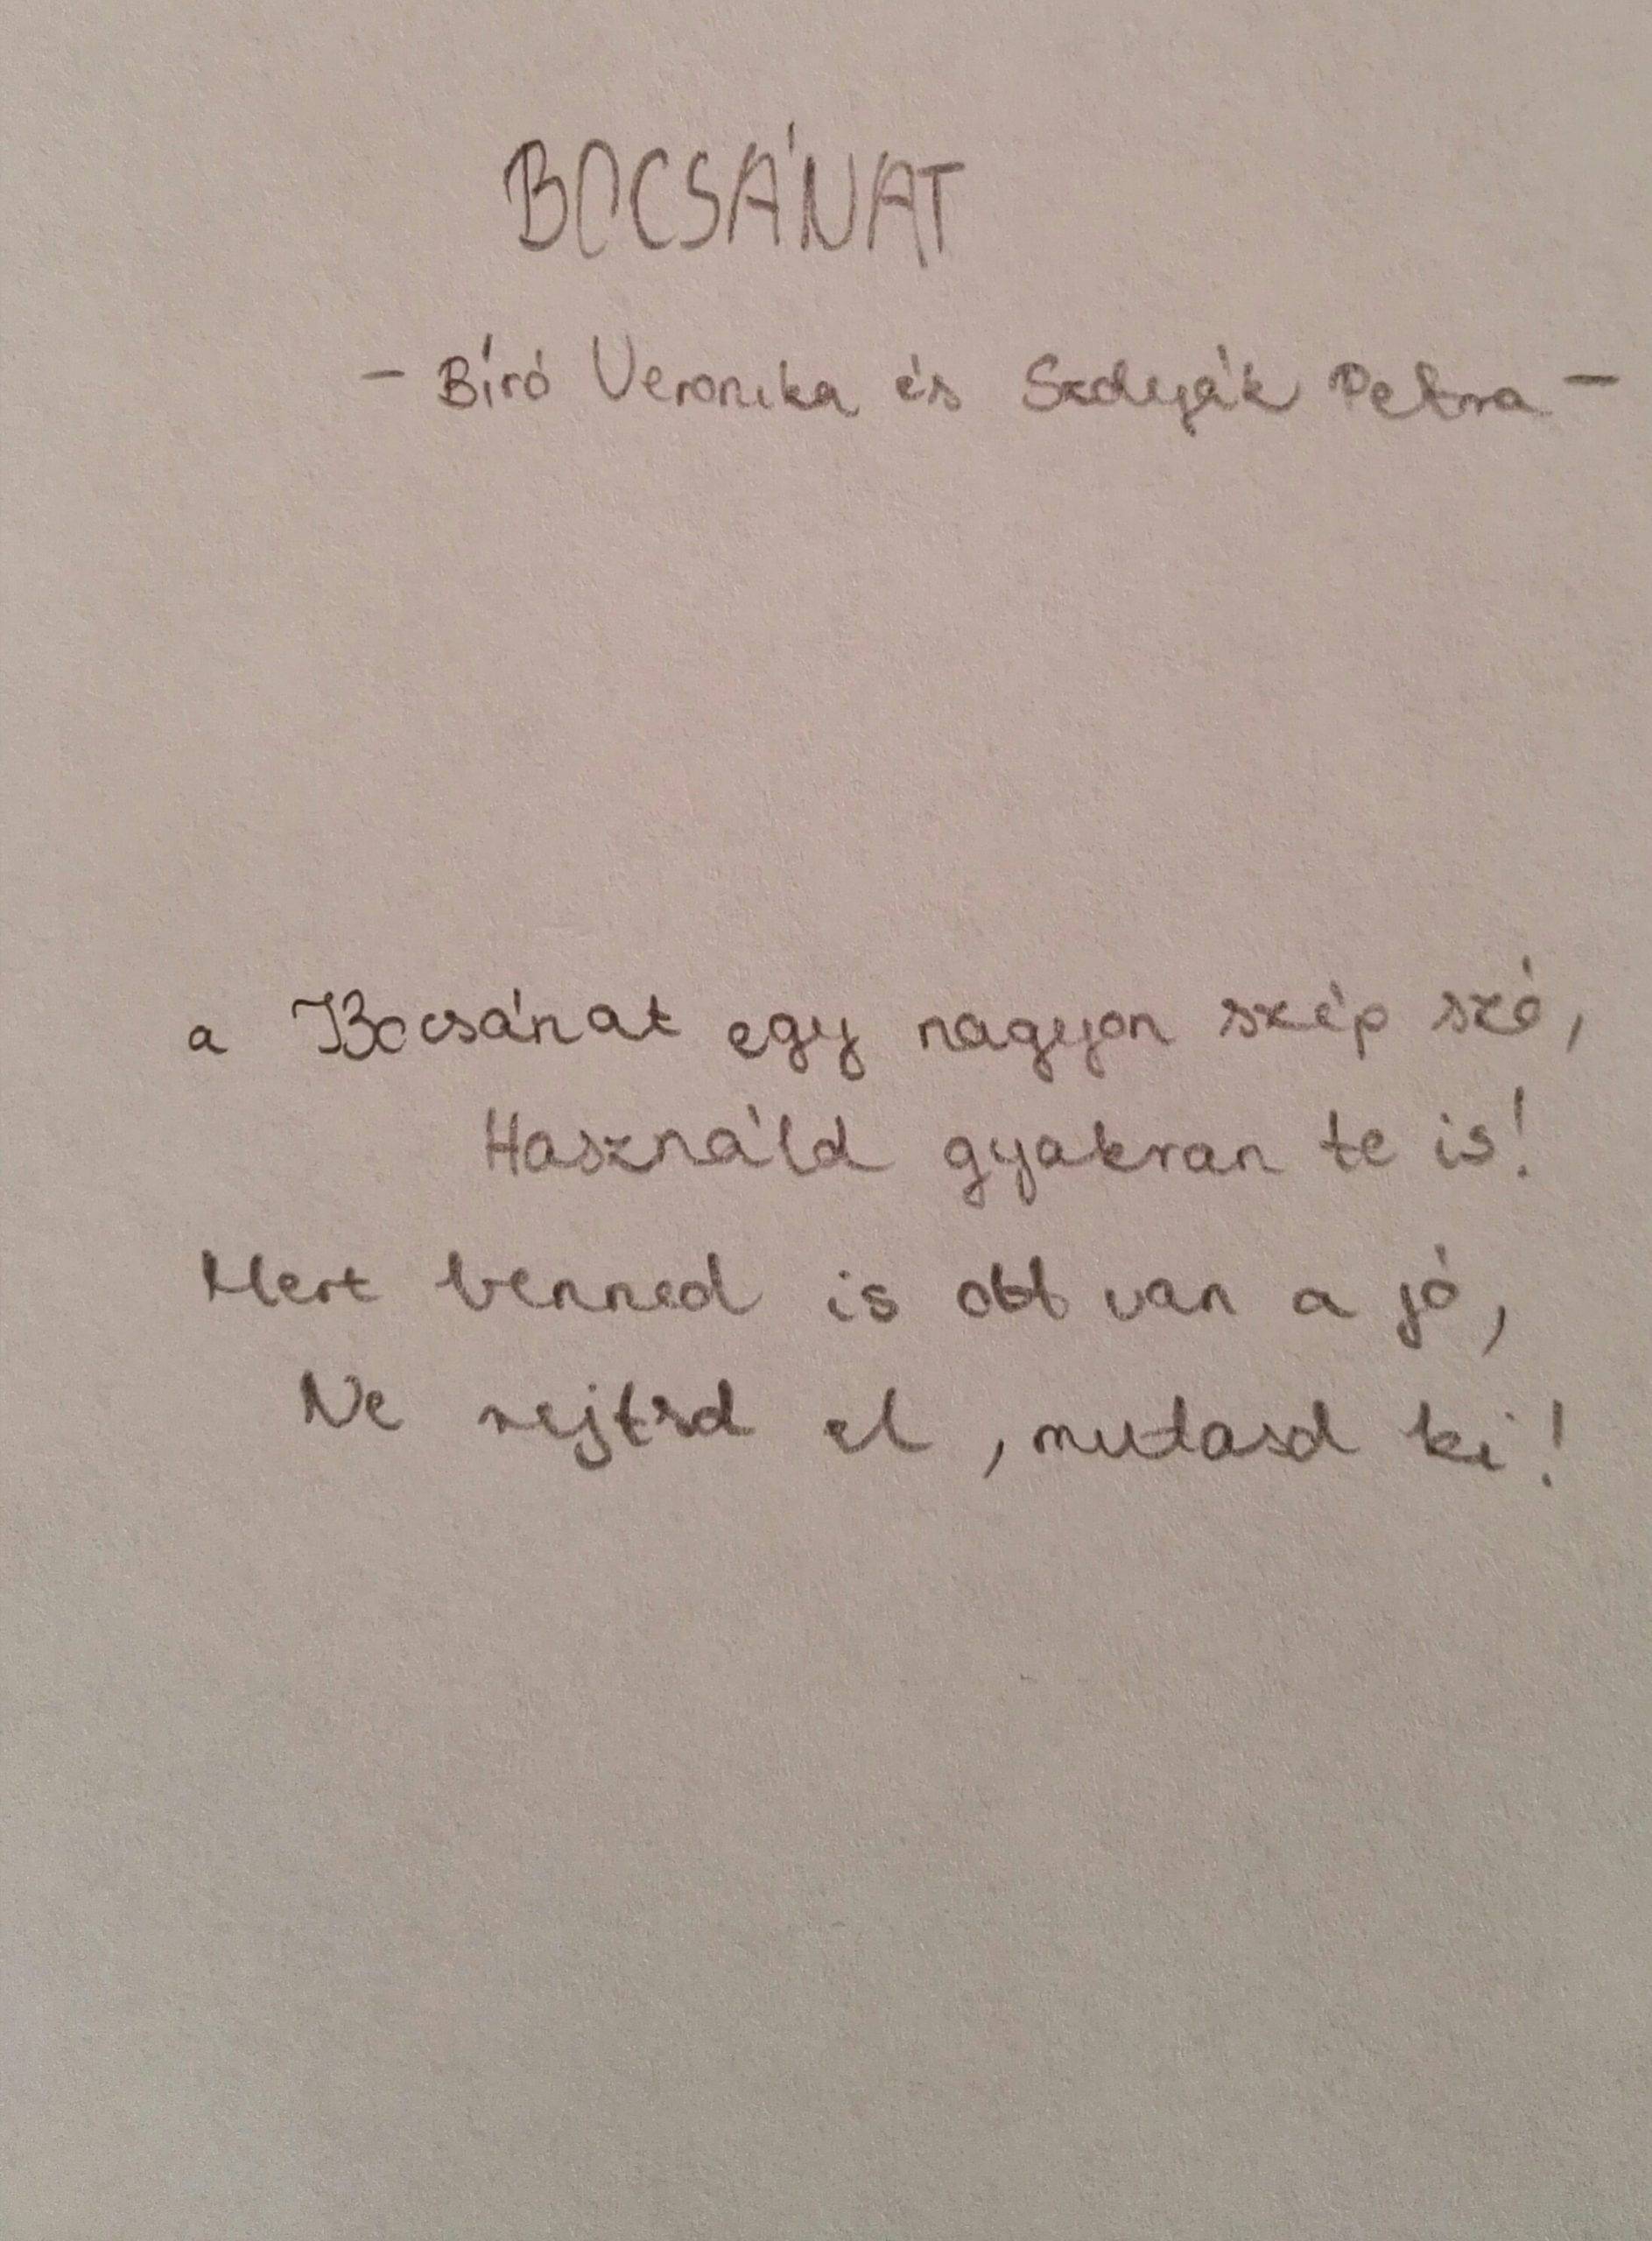 BOCSÁNAT
- Bíró Veronika és Petra -
a Bocsánat egy nagyon szép szó,
Használd gyakran te is!
Mert benned is ott van a jó,
Ne rejtsd el, mutasd ki!